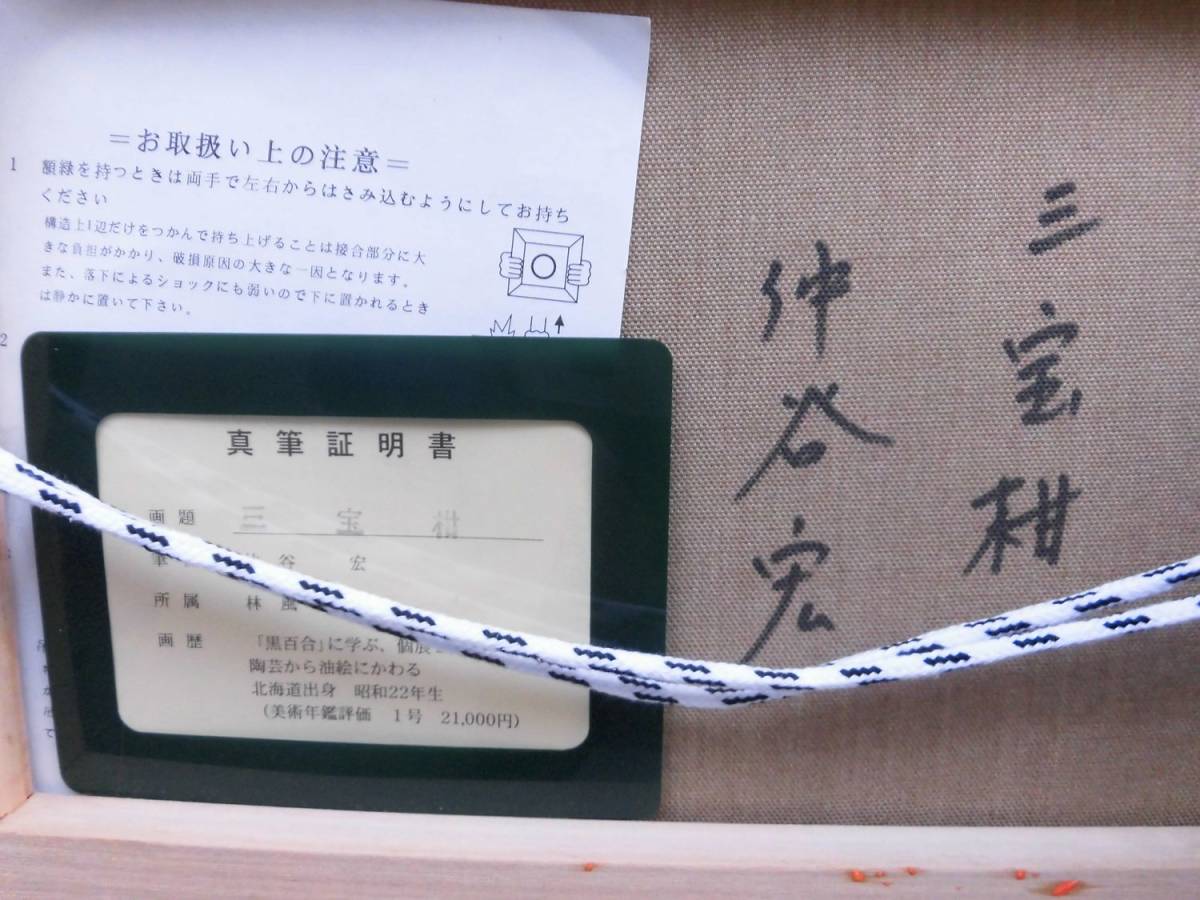 =お取扱い上の注意=
1 額縁を持つときは両手で左右からはさみ込むようにしてお持ち
ください
構造上1辺だけをつかんで持ち上げることは接合部分に大
きな負担がかかり、破損原因の大きな一因となります。
また、落下によるショックにも弱いので下に置かれるとき
は静かに置いて下さい。
2
真筆証明書
画題 三宝柑
筆 谷 宏
所属 林
画歴 「黒百合」に学ぶ、個展
陶芸から油絵にかわる
北海道出身 昭和22年生
(美術年鑑評価 1号 21,000円)
三宝柑
仲谷宏